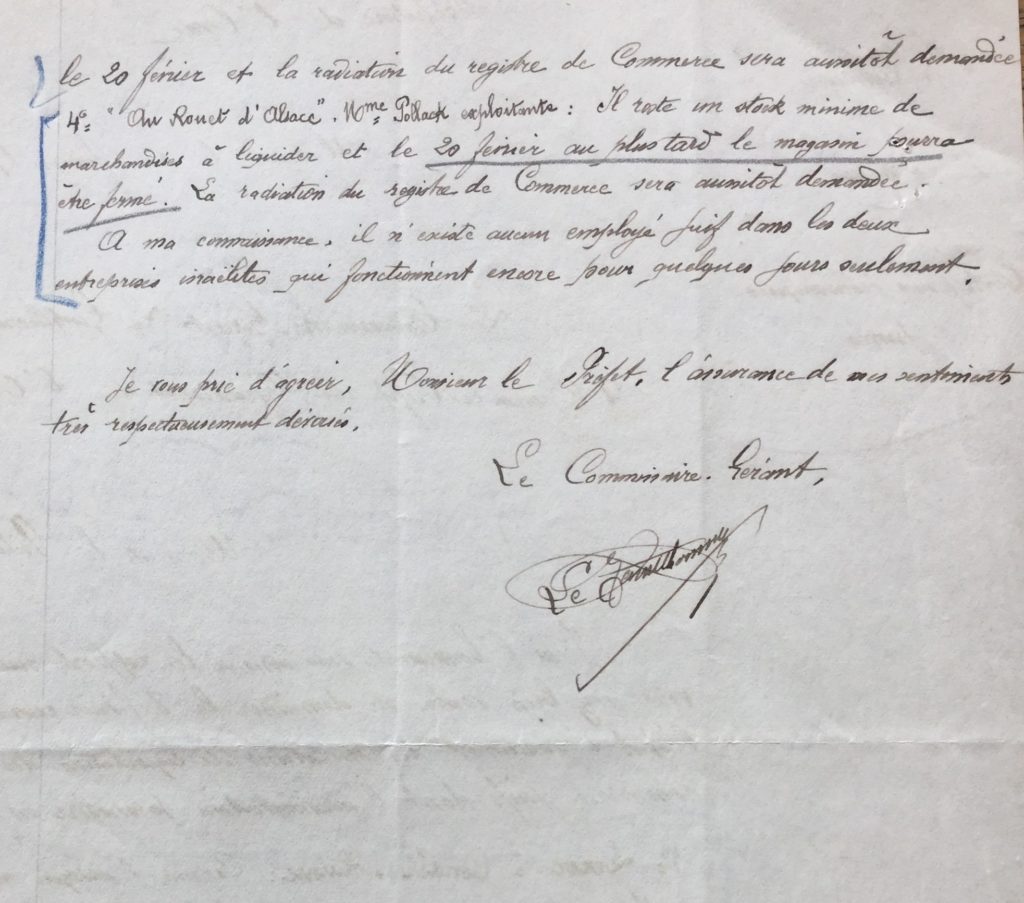 le 20 février et la radiation du registre de Commerce sera aussitôt demandée
4°= "Au Rouet d'Alsace". Mme Pollack exploitante : Il reste un stock minime de
marchandises à liquider et le 20 février au plus tard le magasin pourra
être fermé. La radiation du registre de Commerce sera aussitôt demandée.
A ma connaissance, il n'existe aucun employé juif dans les deux
entreprises israëlites qui fonctionnent encore pour quelques jours seulement.
Je vous prie d'agréer, Monsieur le Préfet, l'assurance de mes sentiments
très respectueusement dévoués.
Le Commissaire-Gérant,